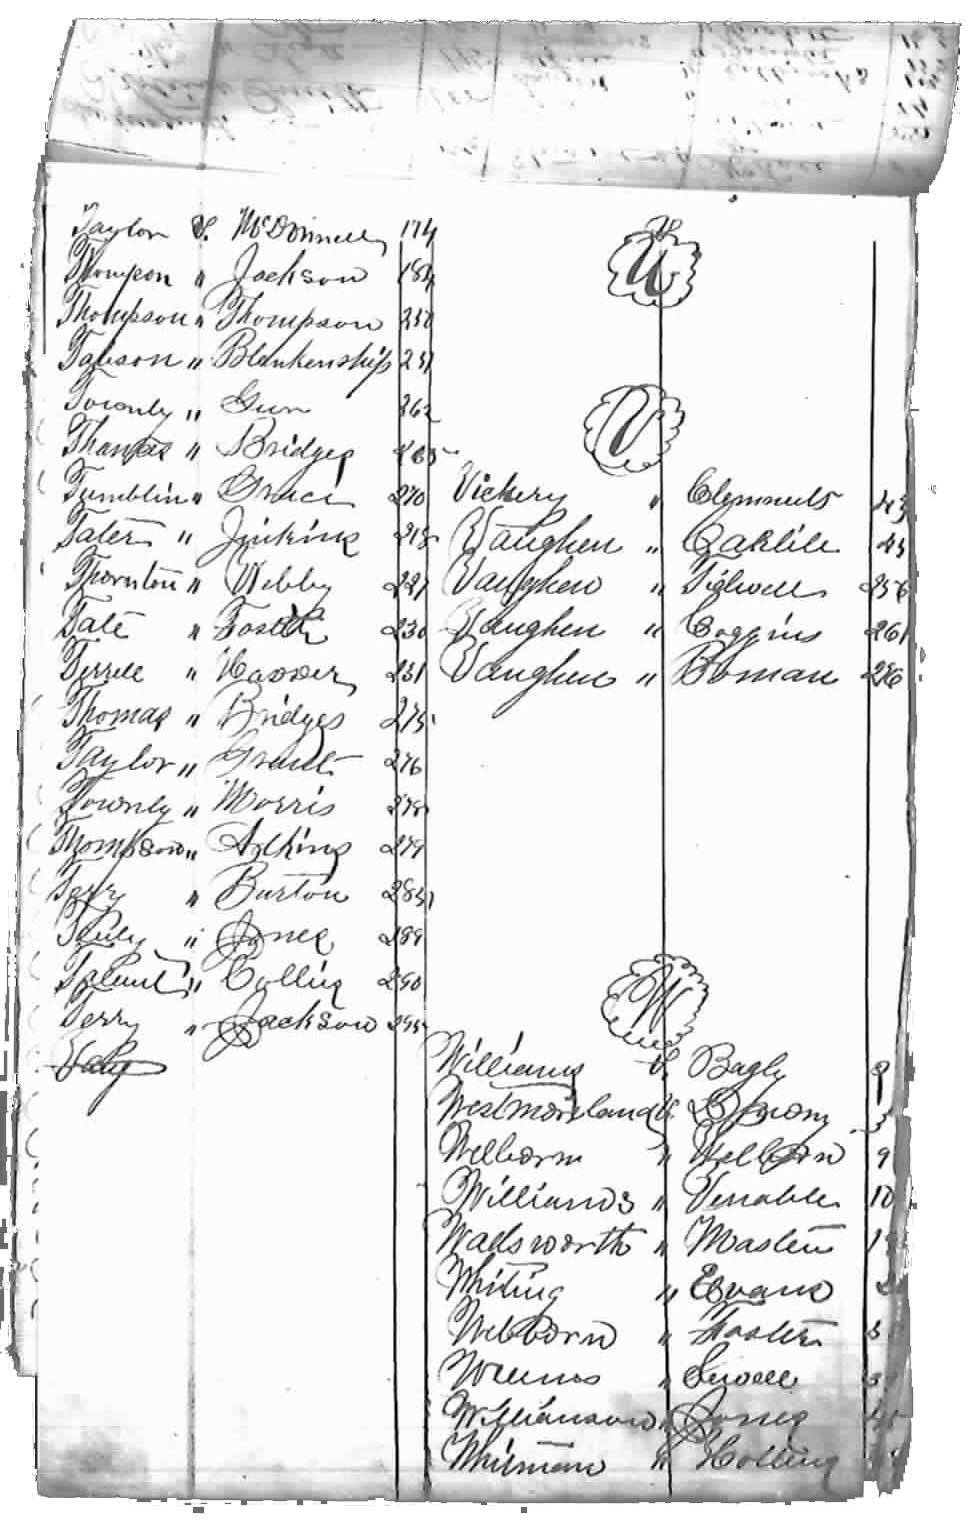 Taylor V. McDonnell 174
Thompson " Jackson 184
Thompson " Thompson 250
Tabson " Blankenship 251
Townly " Gun 262
Thomas " Bridges 265
Tumblin " Grace 270
Tater " Jinkins 218
Thornton " Webby 221
Tate " Foster 230
Terrell " 231
Thomas " Bridges 275
Taylor " 276
Townly " Morris 278
Thompson " Adkins 279
Terry " Burton
" Jones 289
Talent " Collins 290
Terry " Jackson 295
U
V
Vickery " Clemmets 43
Vaughen " Carlile 45
Vaughen " Tidwell 256
Vaughen " Coggins 261
Vaughen " Boman 286
W
Williams V. Bagly
Westmoreland V.
Welborn " Welborn 9
Williams " Venable 10
Wadsworth " Masten
Whiting " Evans
Welborn " Foster
Weems " Sewell
Williamson " Jones
Whitman " Hollins